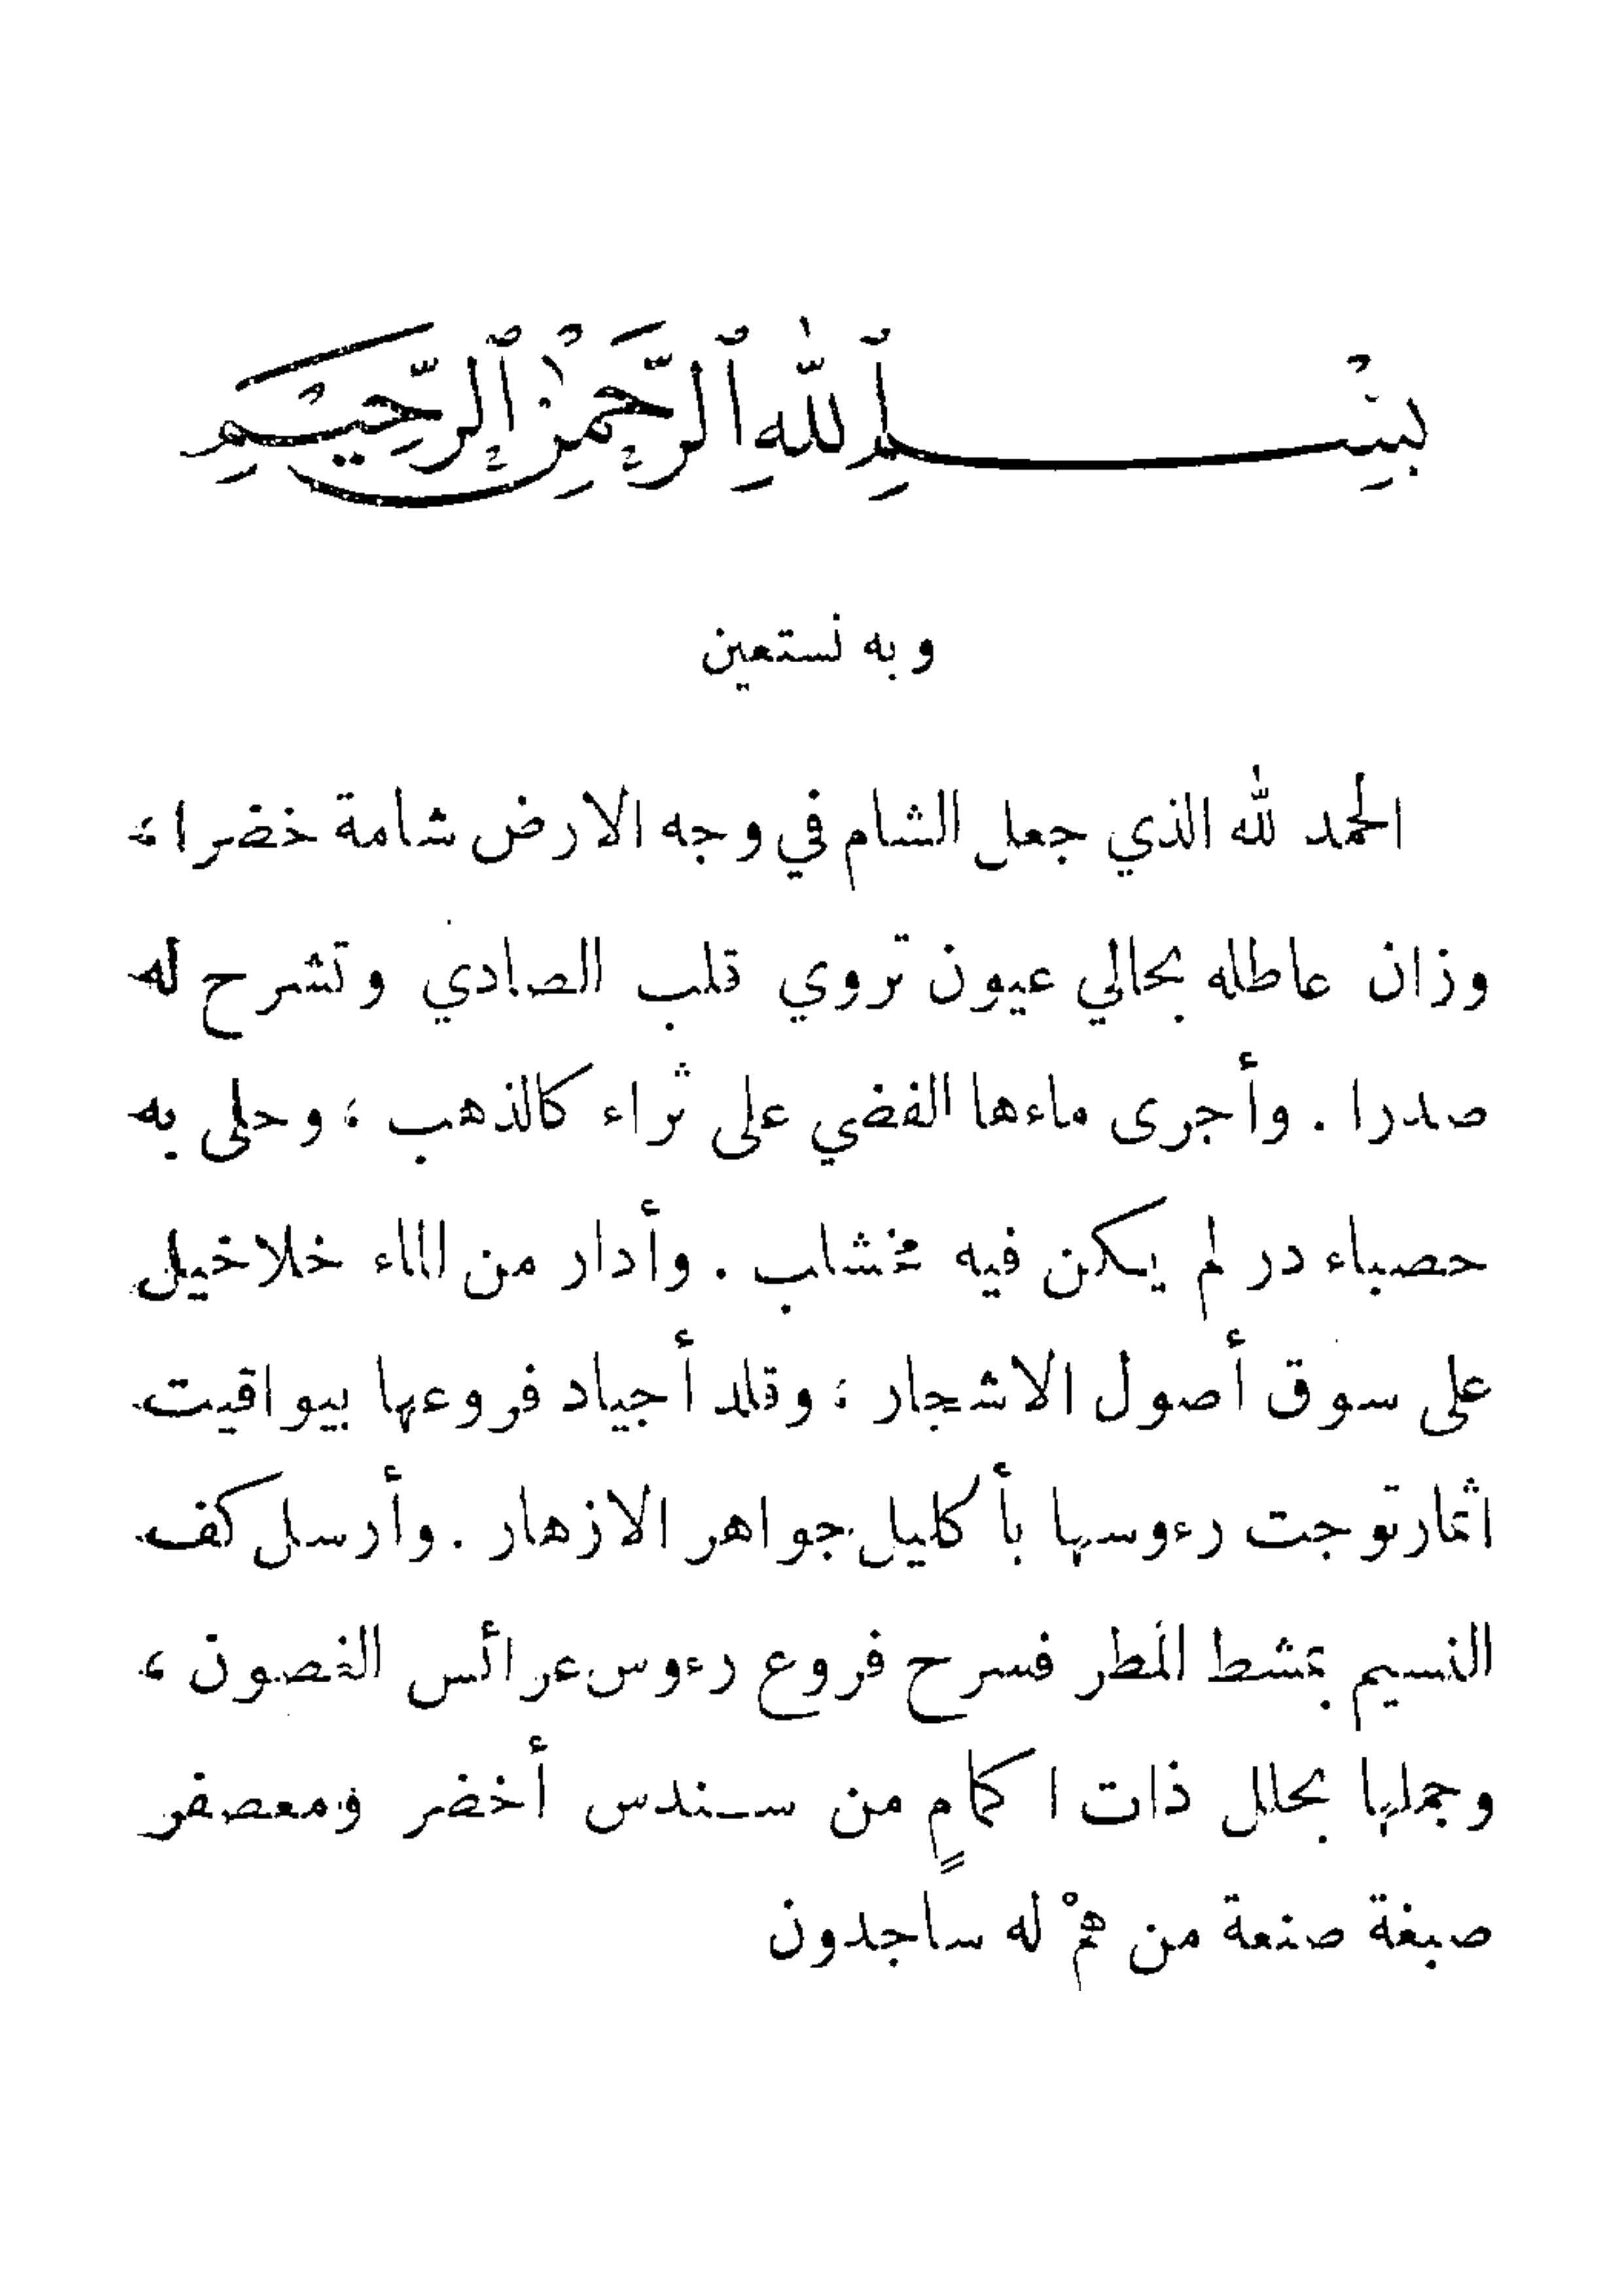 بِسْمِ ٱللّٰهِ ٱلرَّحْمٰنِ ٱلرَّحِيمِ
وبه نستعين
الحمد لله الذي جعل الشام في وجه الارض شامة خضرا ،
وزان عاطله بحالي عيون تروي قلب الصادي وتشرح له
صدرا . وأجرى ماءها الفضي على ثراء كالذهب ، وحلى به
حصباء در لم يكن فيه مخشلب . وأدار من الماء خلاخيل
على سوق أصول الاشجار ، وقلد أجياد فروعها بيواقيت
اثمار توجت رءوسها بأكليل جواهر الازهار . وأرسل كف
النسيم بمشط المطر فسرح فروع رءوس عرائس الغصون ،
وجملها بحلل ذات اكمامٍ من سندس أخضر ومعصفر
صبغة صنعة من همْ له ساجدون